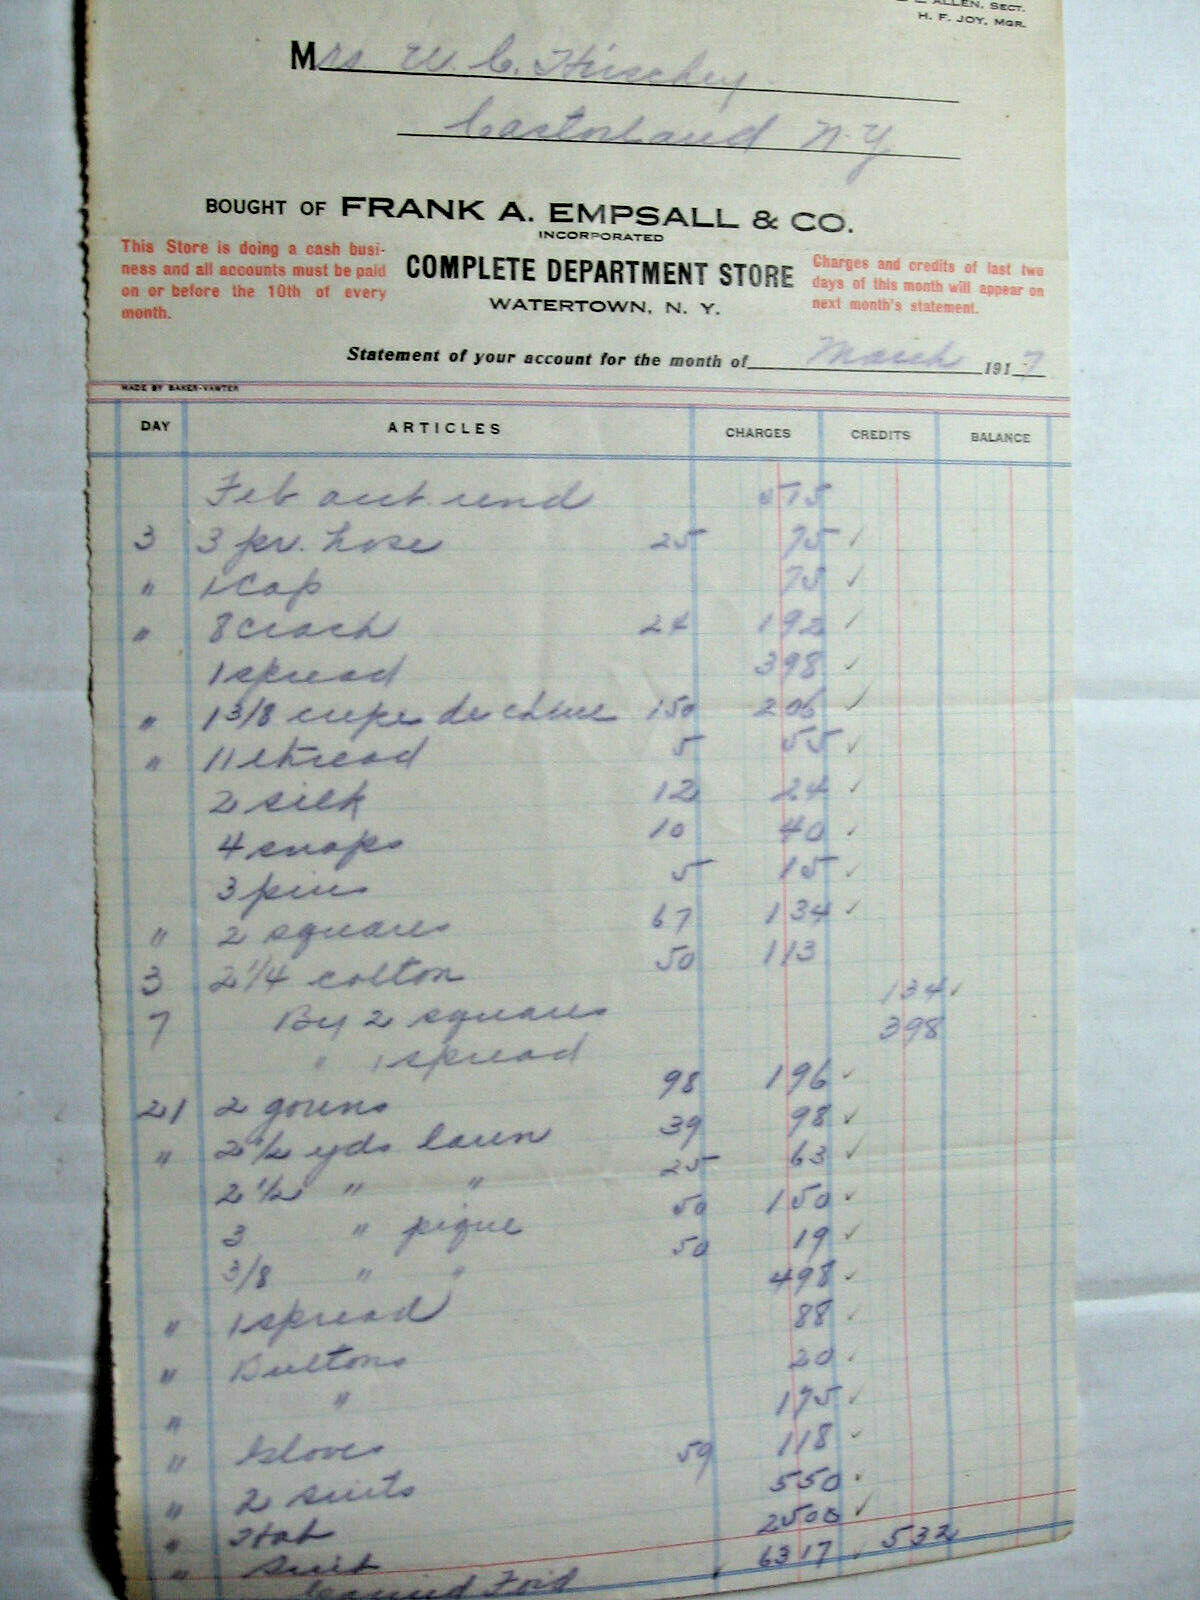 ALLEN, SECT.
H. F. JOY, MGR.
Mrs W. C. Hirschey
Castorland N.Y
BOUGHT OF FRANK A. EMPSALL & CO.
INCORPORATED
This Store is doing a cash busi-
ness and all accounts must be paid
on or before the 10th of every
month.
COMPLETE DEPARTMENT STORE
WATERTOWN, N. Y.
Charges and credits of last two
days of this month will appear on
next month's statement.
Statement of your account for the month of March 1917
MADE BY BAKER-VAWTER
DAY ARTICLES CHARGES CREDITS BALANCE
Feb acct. rend 575
3 3 pr. hose 25 75 ✓
" 1 Cap 75 ✓
" 8 Crash 24 192 ✓
1 spread 398 ✓
" 1 3/8 crepe de chine 150 206 ✓
" 11 thread 5 55 ✓
2 silk 12 24 ✓
4 snaps 10 40 ✓
3 pins 5 15 ✓
" 2 squares 67 134 ✓
3 2 1/4 cotton 50 113
7 By 2 squares 134 ✓
" 1 spread 398
21 2 gowns 98 196 ✓
" 2 1/2 yds lawn 39 98 ✓
2 1/2 " " 25 63 ✓
3 " pique 50 150 ✓
3/8 " " 50 19 ✓
" 1 spread 498 ✓
" Buttons 88 ✓
" " 20 ✓
" Gloves 175 ✓
" 2 suits 59 118 ✓
" Hat 550 ✓
" Suit 2500 ✓
Carried Ford 6317 ✓ 532